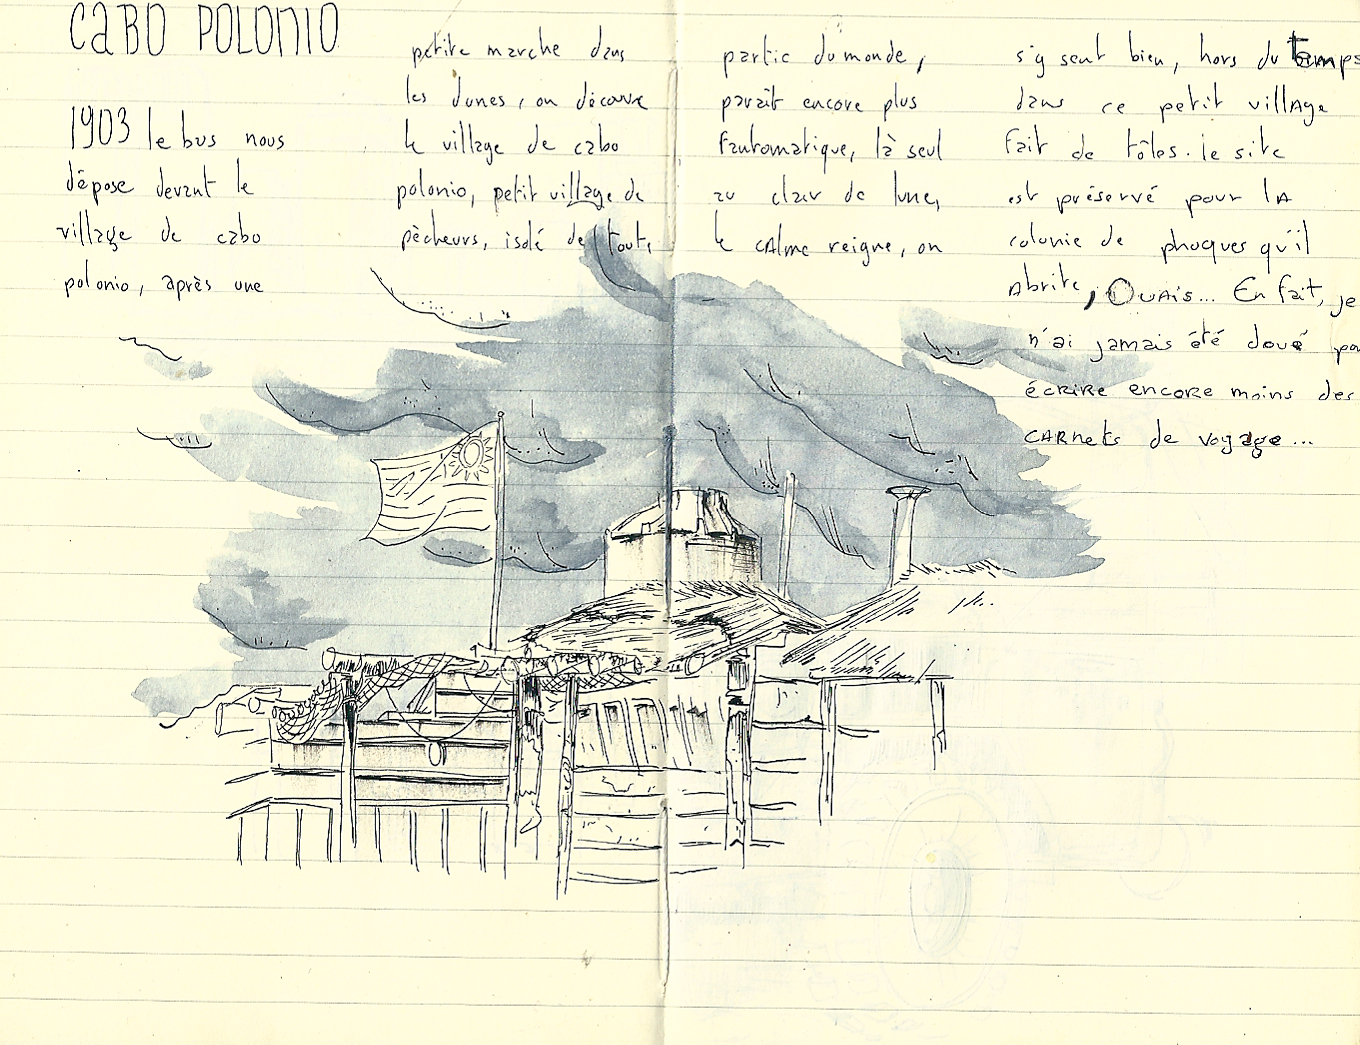 CABO POLONIO
1903 le bus nous
dépose devant le
village de cabo
polonio, après une
petite marche dans
les dunes, on découvre
le village de cabo
polonio, petit village de
pêcheurs, isolé de toute
partie du monde,
paraît encore plus
fantomatique, là seul
au clair de lune,
le cAlme reigne, on
s'y sent bien, hors du temps
dans ce petit villAge
fait de tôles. le site
est préservé pour lA
colonie de phoques qu'il
Abrite, OuAis... En fait, je
n'ai jamais été doué
écRiRe encoRe moins des
CARnets de voyage...